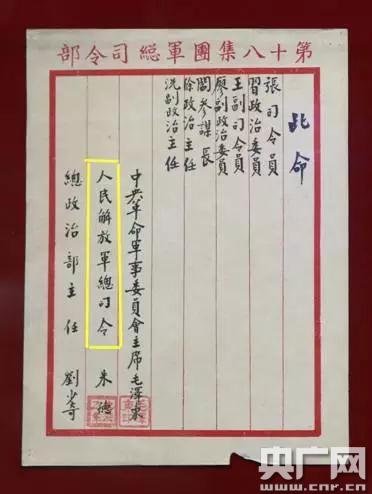 第十八集團軍總司令部
此命
張司令員
習政治委員
王副司令員
廖副政治委員
閻參謀長
徐政治主任
冼副政治主任
中央革命軍事委員會主席毛澤東
人民解放軍總司令 朱德
總政治部主任 劉少奇
央广网
www.cnr.cn